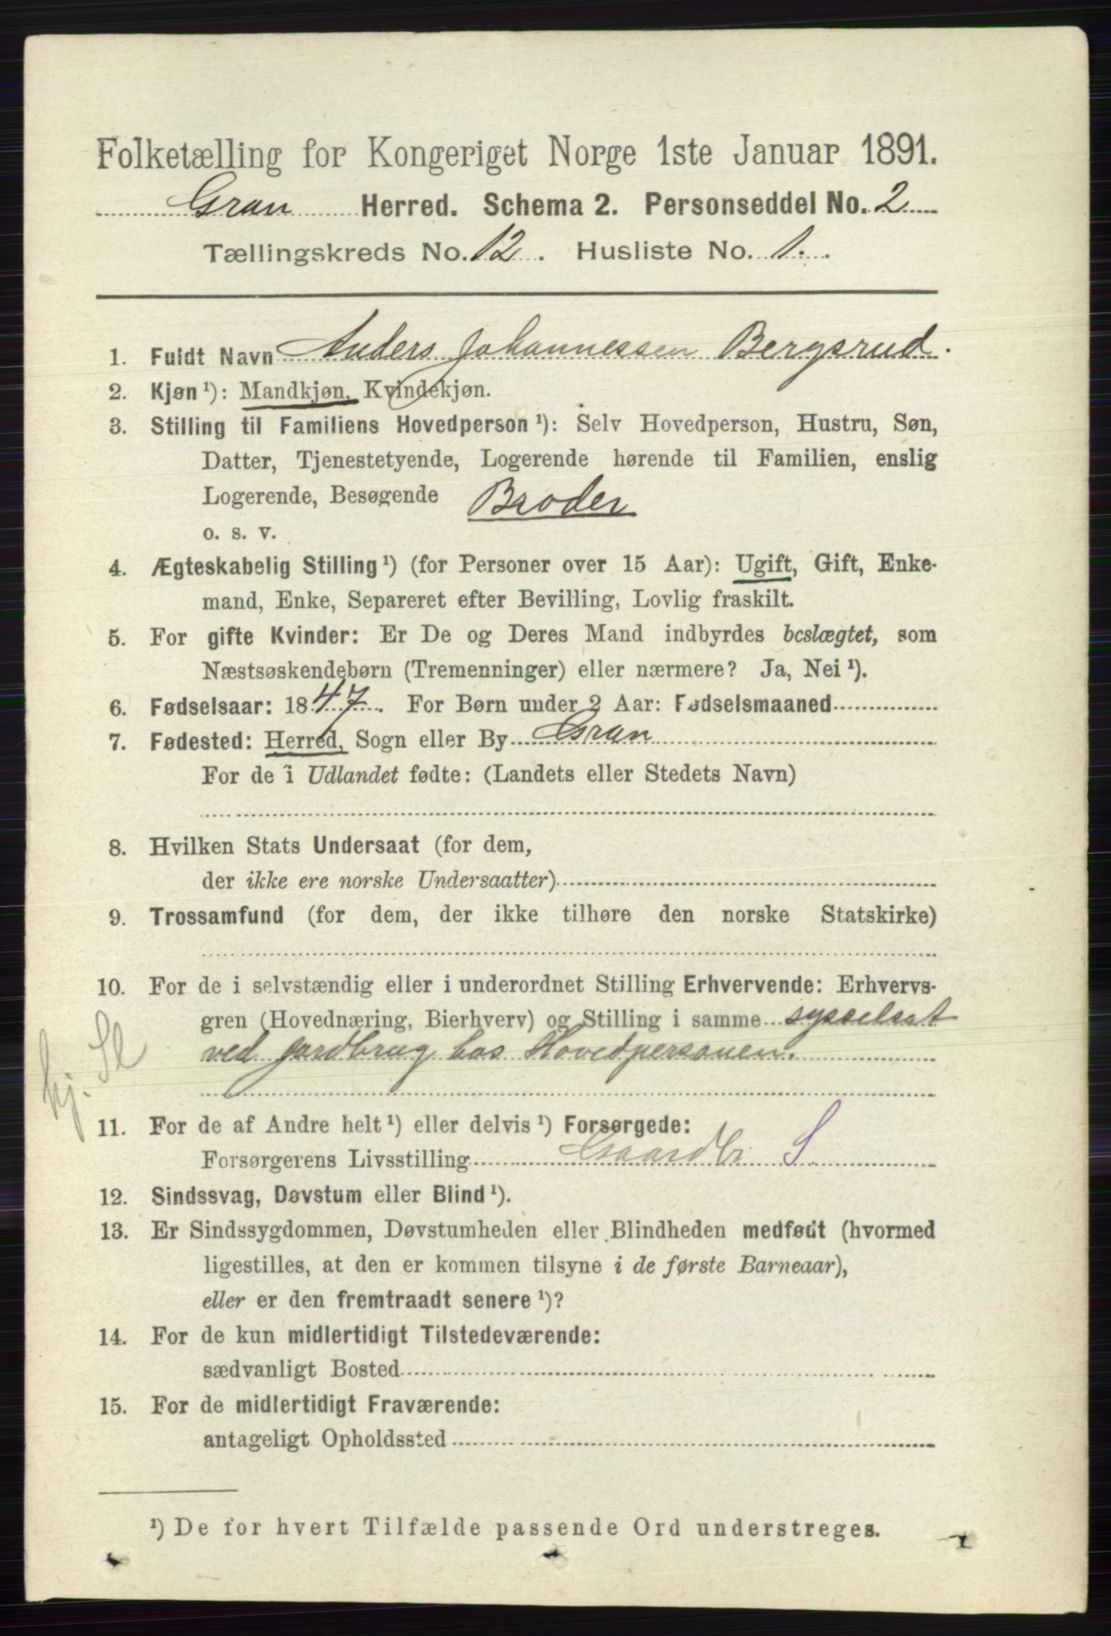 Folketælling for Kongeriget Norge 1ste Januar 1891.
Gran Herred. Schema 2. Personseddel No. 2
Tællingskreds No. 12. Husliste No. 1.
1. Fuldt Navn Anders Johannessen Bergsrud.
2. Kjøn ¹): Mandkjøn, Kvindekjøn.
3. Stilling til Familiens Hovedperson ¹): Selv Hovedperson, Hustru, Søn,
Datter, Tjenestetyende, Logerende hørende til Familien, enslig
Logerende, Besøgende Broder
o. s. v.
4. Ægteskabelig Stilling ¹) (for Personer over 15 Aar): Ugift, Gift, Enke-
mand, Enke, Separeret efter Bevilling, Lovlig fraskilt.
5. For gifte Kvinder: Er De og Deres Mand indbyrdes beslægtet, som
Næstsøskendebørn (Tremenninger) eller nærmere? Ja, Nei ¹).
6. Fødselsaar: 1847. For Børn under 2 Aar: Fødselsmaaned
7. Fødested: Herred, Sogn eller By Gran
For de i Udlandet fødte: (Landets eller Stedets Navn)
8. Hvilken Stats Undersaat (for dem,
der ikke ere norske Undersaatter)
9. Trossamfund (for dem, der ikke tilhøre den norske Statskirke)
10. For de i selvstændig eller i underordnet Stilling Erhvervende: Erhvervs-
gren (Hovednæring, Bierhverv) og Stilling i samme sysselsat
ved jordbrug hos Hovedpersonen.
hj. Sl
11. For de af Andre helt ¹) eller delvis ¹) Forsørgede:
Forsørgerens Livsstilling Gaardbr S
12. Sindssvag, Døvstum eller Blind ¹).
13. Er Sindssygdommen, Døvstumheden eller Blindheden medfødt (hvormed
ligestilles, at den er kommen tilsyne i de første Barneaar),
eller er den fremtraadt senere ¹)?
14. For de kun midlertidigt Tilstedeværende:
sædvanligt Bosted
15. For de midlertidigt Fraværende:
antageligt Opholdssted
¹) De for hvert Tilfælde passende Ord understreges.